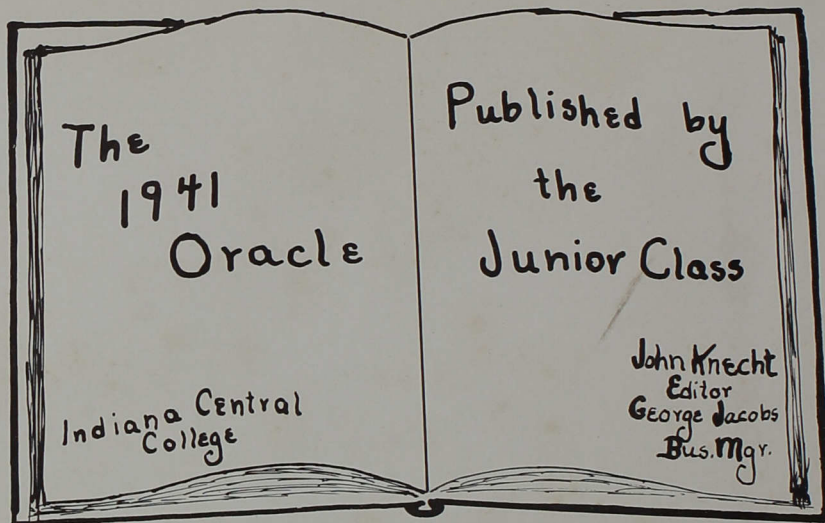 The
1941
Oracle
Indiana Central
College
Published by
the
Junior Class
John Knecht
Editor
George Jacobs
Bus. Mgr.